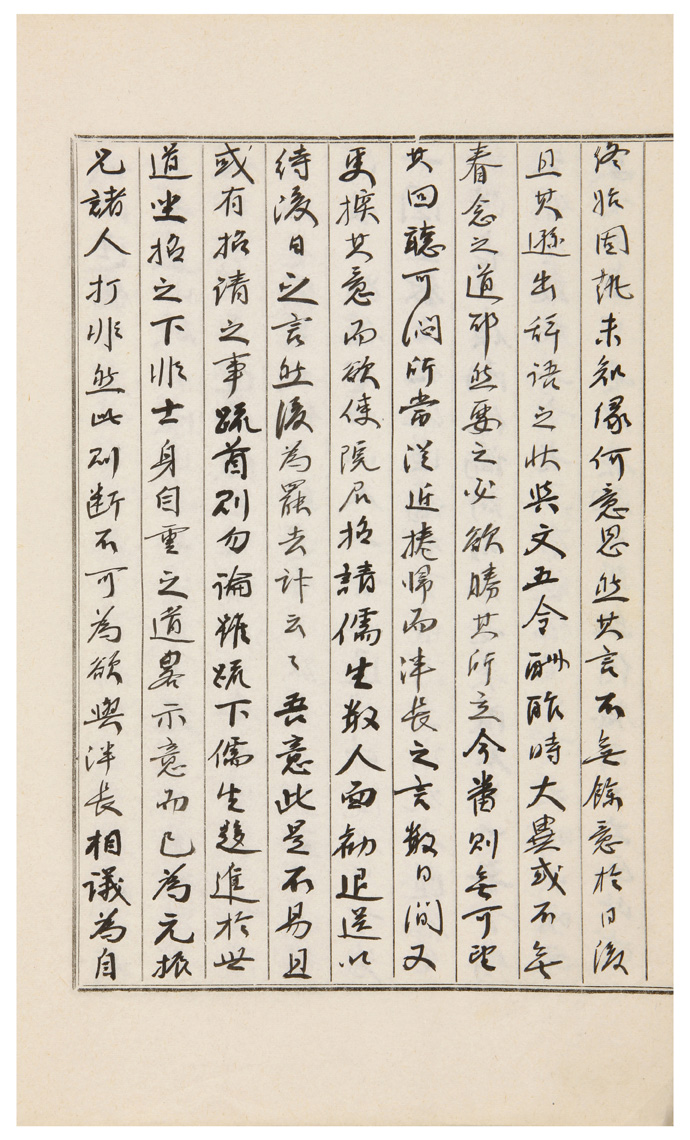 終始固執未知緣何意思然其言不無餘意於日後
且其遜出辞語之状與文五令酬酢時大異或不無
眷念之道邪然要之必欲勝其所立今番則無可望
其回聽可悶所當從近捷帰而泮長之言数日間又
更探其意而欲使院居招請儒生数人面勧退送以
待後日之言然後為罷去計云〻吾意此是不易且
或有招請之事疏首則勿論雖疏下儒生趍進於世
道坐招之下非士身自重之道畧示意而已為元振
兄諸人打非然此則断不可為欲與泮長相議為自